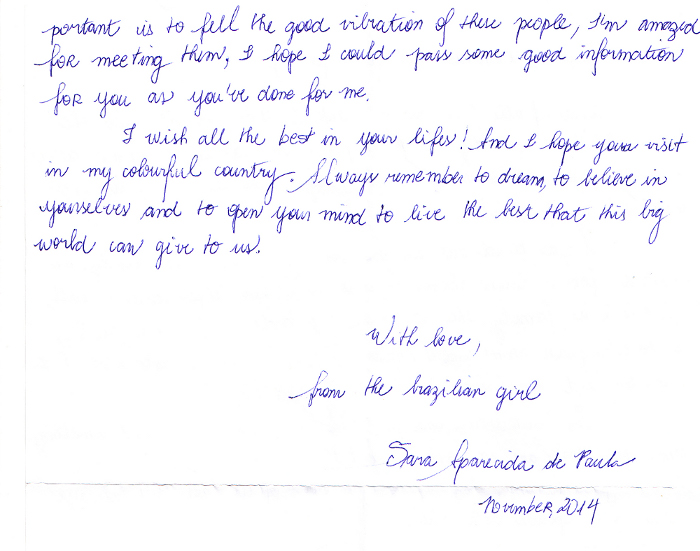 portant is to fell the good vibration of these people, I'm amazed
for meeting them, I hope I could pass some good information
for you as you've done for me.
I wish all the best in your lifes! And I hope your visit
in my colourful country. Always remember to dream, to believe in
yourselves and to open your mind to live the best that this big
world can give to us.
With love,
from the brazilian girl
Sara Aparecida de Paula
November, 2014